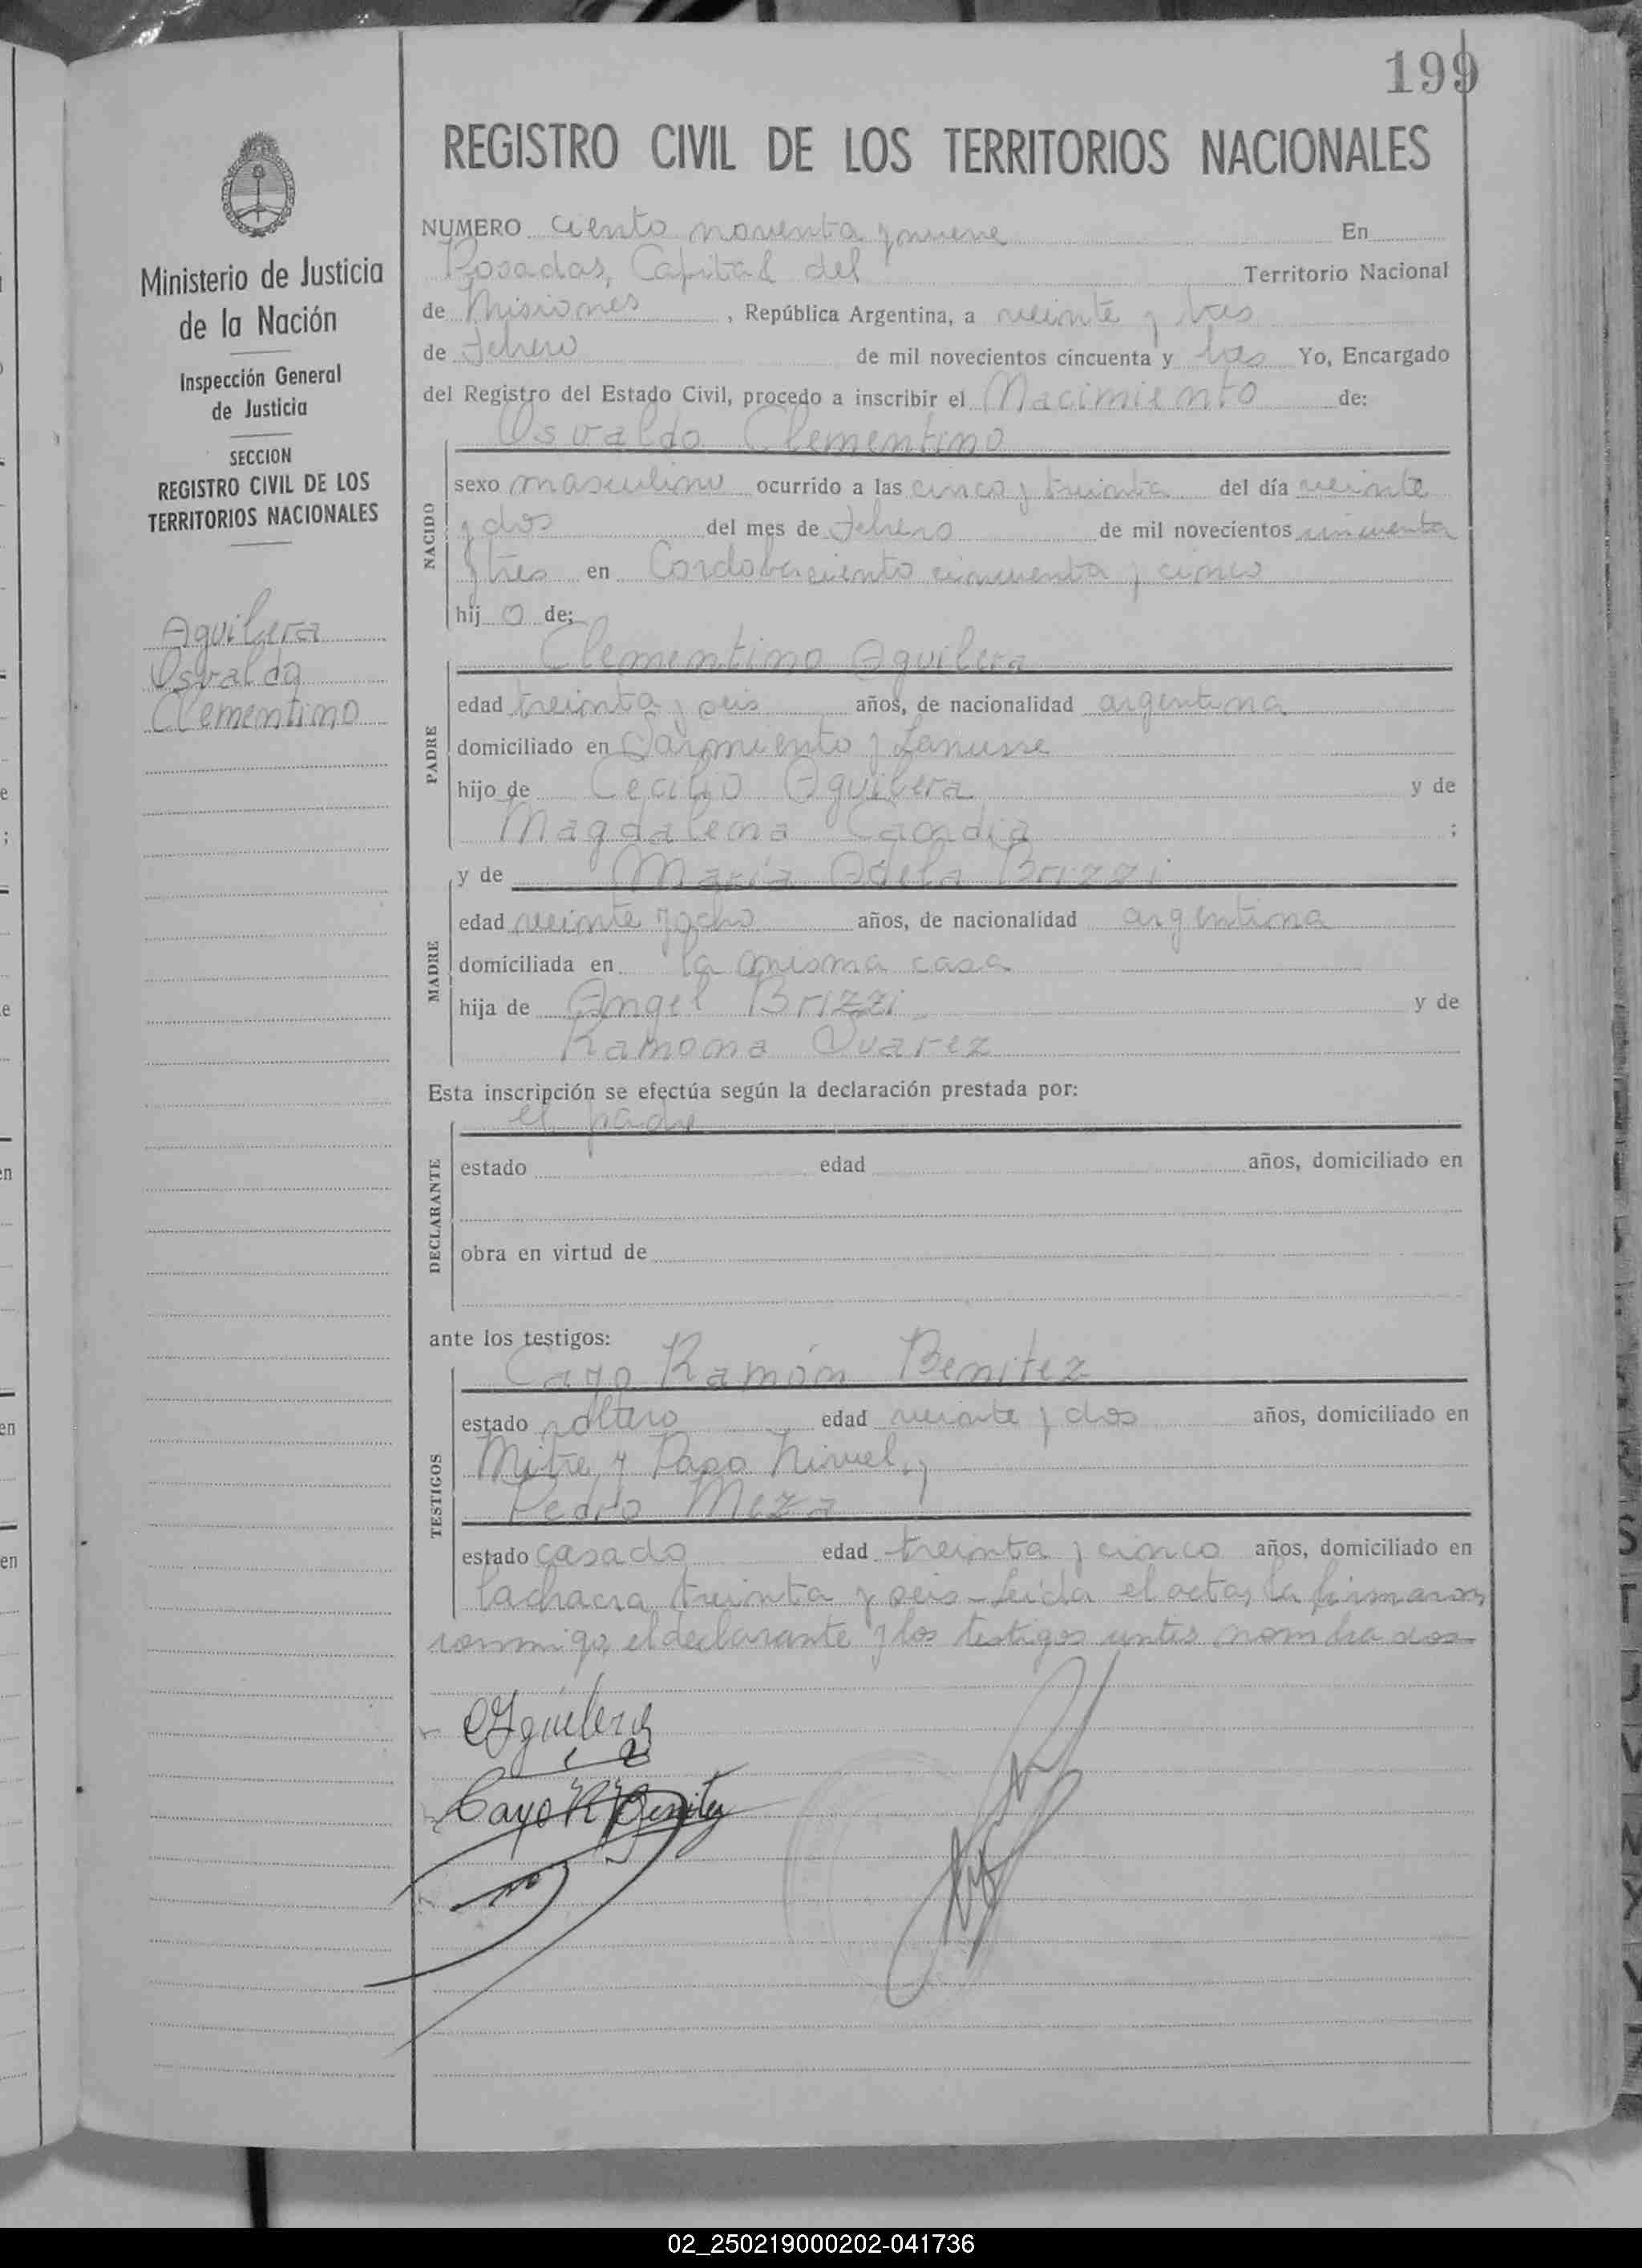 199
REGISTRO CIVIL DE LOS TERRITORIOS NACIONALES
Ministerio de Justicia
de la Nación
Inspección General
de Justicia
SECCION
REGISTRO CIVIL DE LOS
TERRITORIOS NACIONALES
Aguilera
Osvaldo
Clementino
NUMERO ciento noventa y nueve En
Posadas, Capital del Territorio Nacional
de Misiones, República Argentina, a veinte y tres
de Febrero de mil novecientos cincuenta y tres Yo, Encargado
del Registro del Estado Civil, procedo a inscribir el Nacimiento de:
Osvaldo Clementino
NACIDO
sexo masculino ocurrido a las cinco y treinta del día veinte
y dos del mes de Febrero de mil novecientos cincuenta
y tres en Cordoba ciento cincuenta y cinco
hij o de;
Clementino Aguilera
PADRE
edad treinta y seis años, de nacionalidad argentina
domiciliado en Sarmiento y Lanusse
hijo de Cecilio Aguilera y de
Magdalena Candia ;
y de María Adela Brizzi
MADRE
edad veinte y ocho años, de nacionalidad argentina
domiciliada en la misma casa
hija de Angel Brizzi y de
Ramona Suarez
Esta inscripción se efectúa según la declaración prestada por:
el padre
DECLARANTE
estado edad años, domiciliado en
obra en virtud de
ante los testigos:
Cayo Ramón Benitez
TESTIGOS
estado soltero edad veinte y dos años, domiciliado en
Mitre y Paso Nivel, y
Pedro Meza
estado casado edad treinta y cinco años, domiciliado en
la chacra treinta y seis - Leida el acta, la firmaron
conmigo, el declarante y los testigos antes nombrados
Aguilera
Cayo R Benitez
02_250219000202-041736